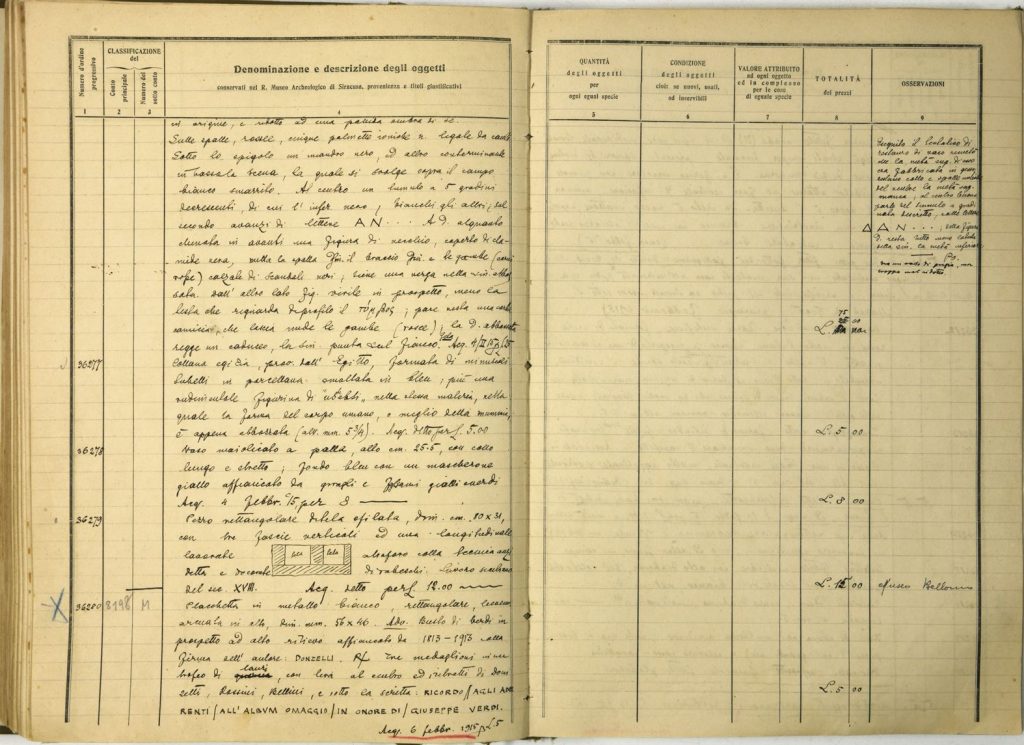 Numero d'ordine progressivo
CLASSIFICAZIONE del
Conto principale
Numero del sotto conto
Denominazione e descrizione degli oggetti
conservati nel R. Museo Archeologico di Siracusa, provenienza e titoli giustificativi
1 2 3 4
in origine, e ridotto ad una pallida ombra di se.
Sulle spalle, rosse, cinque palmette ioniche e legate da
Sotto lo spigolo un meandro nero, ed altro conterminante
in bassa la scena, la quale si svolge sopra il campo
bianco smarrito. Al centro un tumulo a 5 gradini
decrescenti, di cui l' infer. nero, bianchi gli altri; sul
secondo avanzi di lettere AN... A d. alquanto
chinata in avanti una figura di coperto di cla-
mide nera, nuda la spalla il braccio e le gambe
calzate di sandali neri; tiene una verga nella sin. abbas
sata. Dall' altro lato fig. virile in prospetto, meno la
testa che riguarda di profilo il τύμβος; pare vesta una corta
camicia, che lascia nude le gambe (rosee); la d. abbassata
regge un caduceo, la sin. puntata sul fianco. Acq.
36277 Collana egizia, prov. dall' Egitto, formata di minuscoli
tubetti in porcellana smaltata in bleu; più una
rudimentale figurina di "ushebti" nella stessa materia, nella
quale la forma del corpo umano, o meglio della mummia,
è appena abbozzata (alt. mm. 5¾). Acq. detto per £ 5.00
36278 Vaso maiolicato a palla, alto cm. 25.5, con collo
lungo e stretto; fondo bleu con un mascherone
giallo affiancato da girigli e fogliami gialli e verdi
Acq. 4 Febbr. 15, per 8
36279 Pezzo rettangolare di tela sfilata, dim. cm. 80 x 31,
con tre fascie verticali ed una longitudinale
lavorate tela tela
detta e decorate di rabeschi. Lavoro siciliano
del sec. XVIII. Acq. detto per £ 12.00
36280 8198 M Placchetta in metallo bianco, rettangolare,
arcuata in alto, dim. mm. 56 x 46. Adv. Busto di Verdi in
prospetto ad alto rilievo affiancato da 1813-1913 colla
firma dell' autore: DONZELLI. Rx Tre medaglioni in un
trofeo di lauri, con lira al centro ed i ritratti di Doni
zetti, Rossini, Bellini, e sotto la scritta: RICORDO / AGLI ADE
RENTI / ALL' ALBUM OMAGGIO / IN ONORE DI / GIUSEPPE VERDI.
Acq. 6 febbr. 1915 p. £ 5
QUANTITÀ degli oggetti per ogni egual specie
CONDIZIONE degli oggetti cioè: se nuovi, usati, od inservibili
VALORE ATTRIBUITO ad ogni oggetto ed in complesso per le cose di eguale specie
TOTALITÀ dei prezzi
OSSERVAZIONI
5 6 7 8 9
Seguito il tentativo di
restauro di
la metà sup.
era fabbricata in gesso
collo e spalle
del ventre la metà sup.
manca; al centro
parte del tumulo a gradi
nata decretto, colle lettere
Δ AN...; della figura
D. resta tutto meno
sella sin. la metà inferiore
75
L. 00
L. 5 00
L. 8 00
L. 12 00 Museo Bellomo
L. 5 00